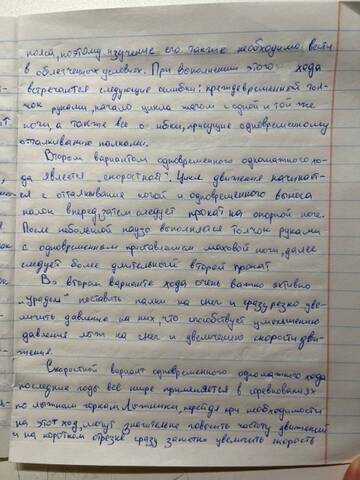 пояса, поэтому изучение его также необходимо вести
в облегчённых условиях. При выполнении этого хода
встречаются следующие ошибки: преждевременный тол-
чок руками, начало цикла шагом с одной и той же
ноги, а также все ошибки, присущие одновременному
отталкиванию палками.
Вторым вариантом одновременного одношажного хо-
да является „скоростной". Цикл движения начинает-
ся с отталкивание ногой и одновременного выноса
палок вперед, затем следует прокат на опорной ноге.
После небольшой паузы выполняется толчок руками
с одновременным приставлением маховой ноги, далее
следует более длительный второй прокат
Во втором варианте хода очень важно активно
„ударом" поставить палки на снег и сразу резко уве-
личить давление на них, что способствует уменьшению
давления лыж на снег и увеличению скорости дви-
жения.
Скоростной вариант одновременного одношажного хода
последние годы всё шире применяется в соревнованиях
по лыжным гонкам. Лыжники, перейдя при необходимости
на этот ход, могут значительно повысить частоту движений
и на коротком отрезке сразу заметно увеличить скорость